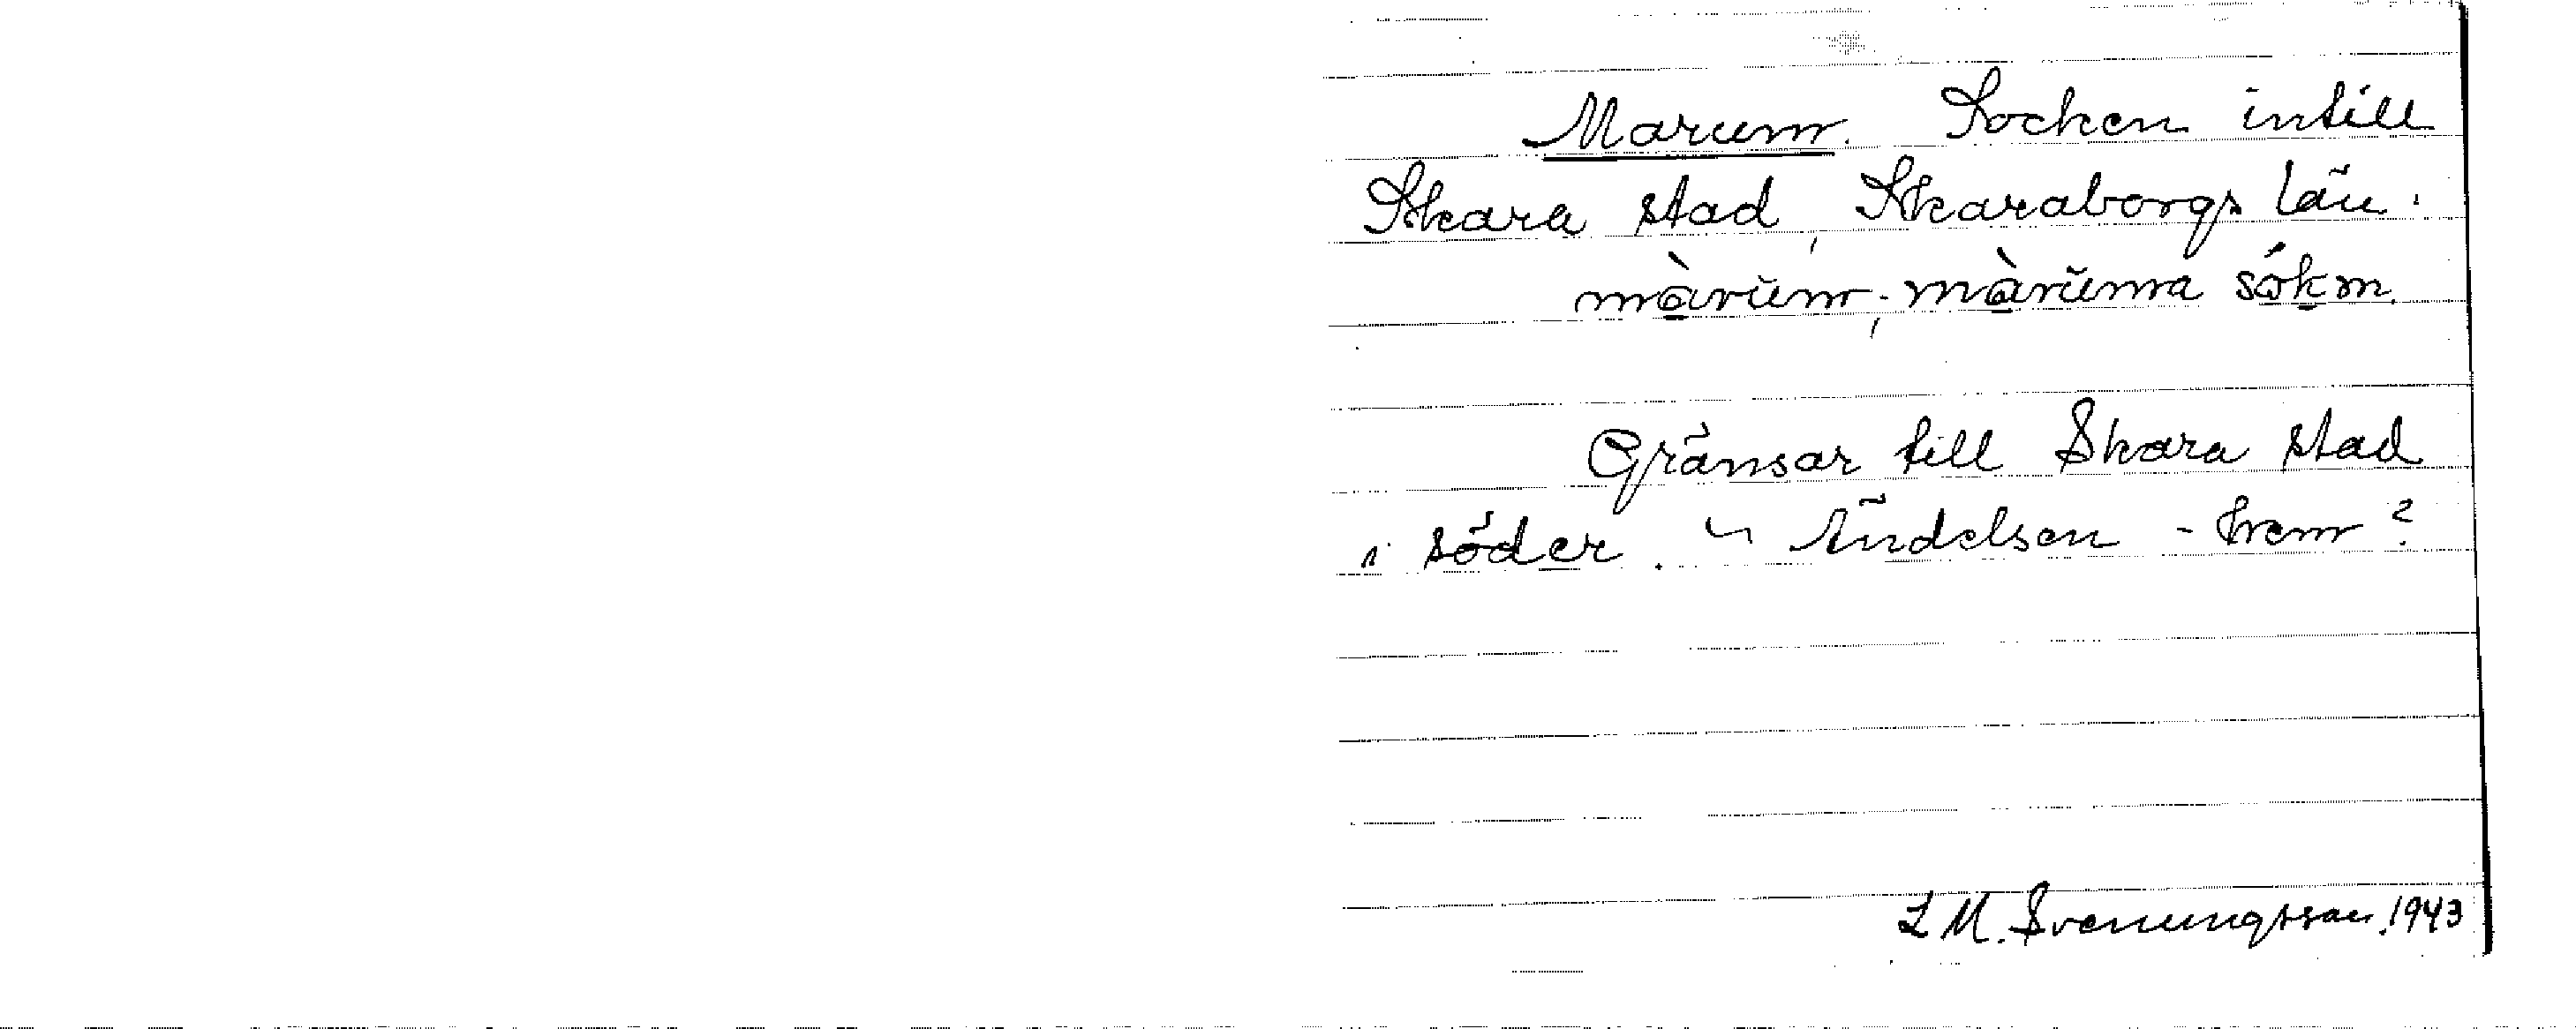 Marum. Socken intill
Skara stad, Skaraborgs län.
màrŭm, màrŭma sókm.
Gränsar till Skara stad
i söder. Ändelsen - hem?
L M. Svenungsson. 1943